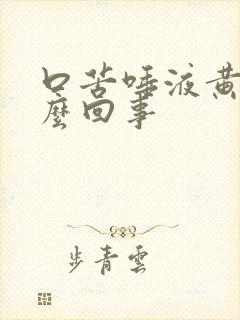 口苦唾液黄
麼回事
步青雲